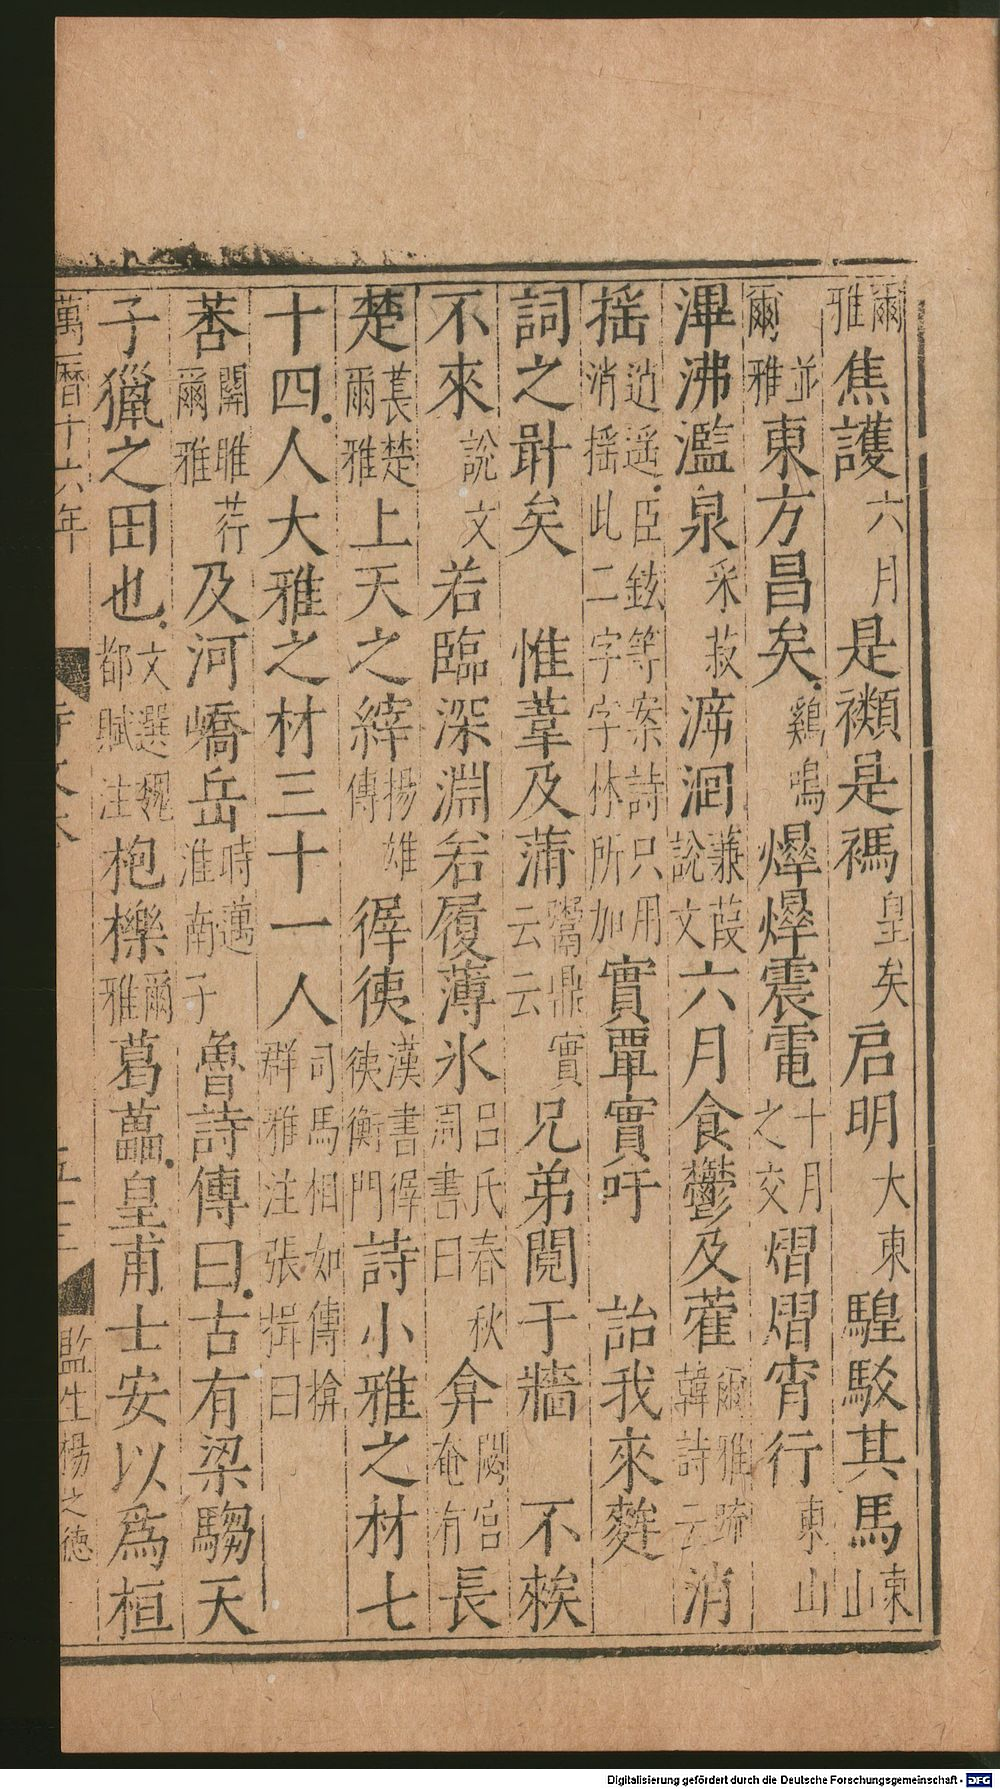 爾雅焦護六月是禷是禡皇矣启明大東騜駁其馬東山
爾雅並東方昌矣雞鳴爗爗震電十月之交熠熠宵行東山
渒沸濫泉采菽㴑洄蒹葭說文六月食鬱及藿爾雅疏韓詩云消
摇逍遥臣鉉等案詩只用消摇此二字字林所加實覃實吁詒我來麰
詞之卙矣惟葦及蒲鬻鼎實云云兄弟鬩于牆不𥏳
不來說文若臨深淵若履薄氷吕氏春秋周書曰弇閟宫奄有長
楚萇楚爾雅上天之縡揚雄傳徲徥漢書徲徥衡門詩小雅之材七
十四人大雅之材三十一人司馬相如傳揜群雅注張揖曰
莕關雎荇爾雅及河嶠岳時邁淮南子魯詩傳曰古有梁騶天
子獵之田也文選魏都賦注枹櫟爾雅葛藟皇甫士安以爲桓
萬曆十六年 監生楊之德
Digitalisierung gefördert durch die Deutsche Forschungsgemeinschaft - DFG